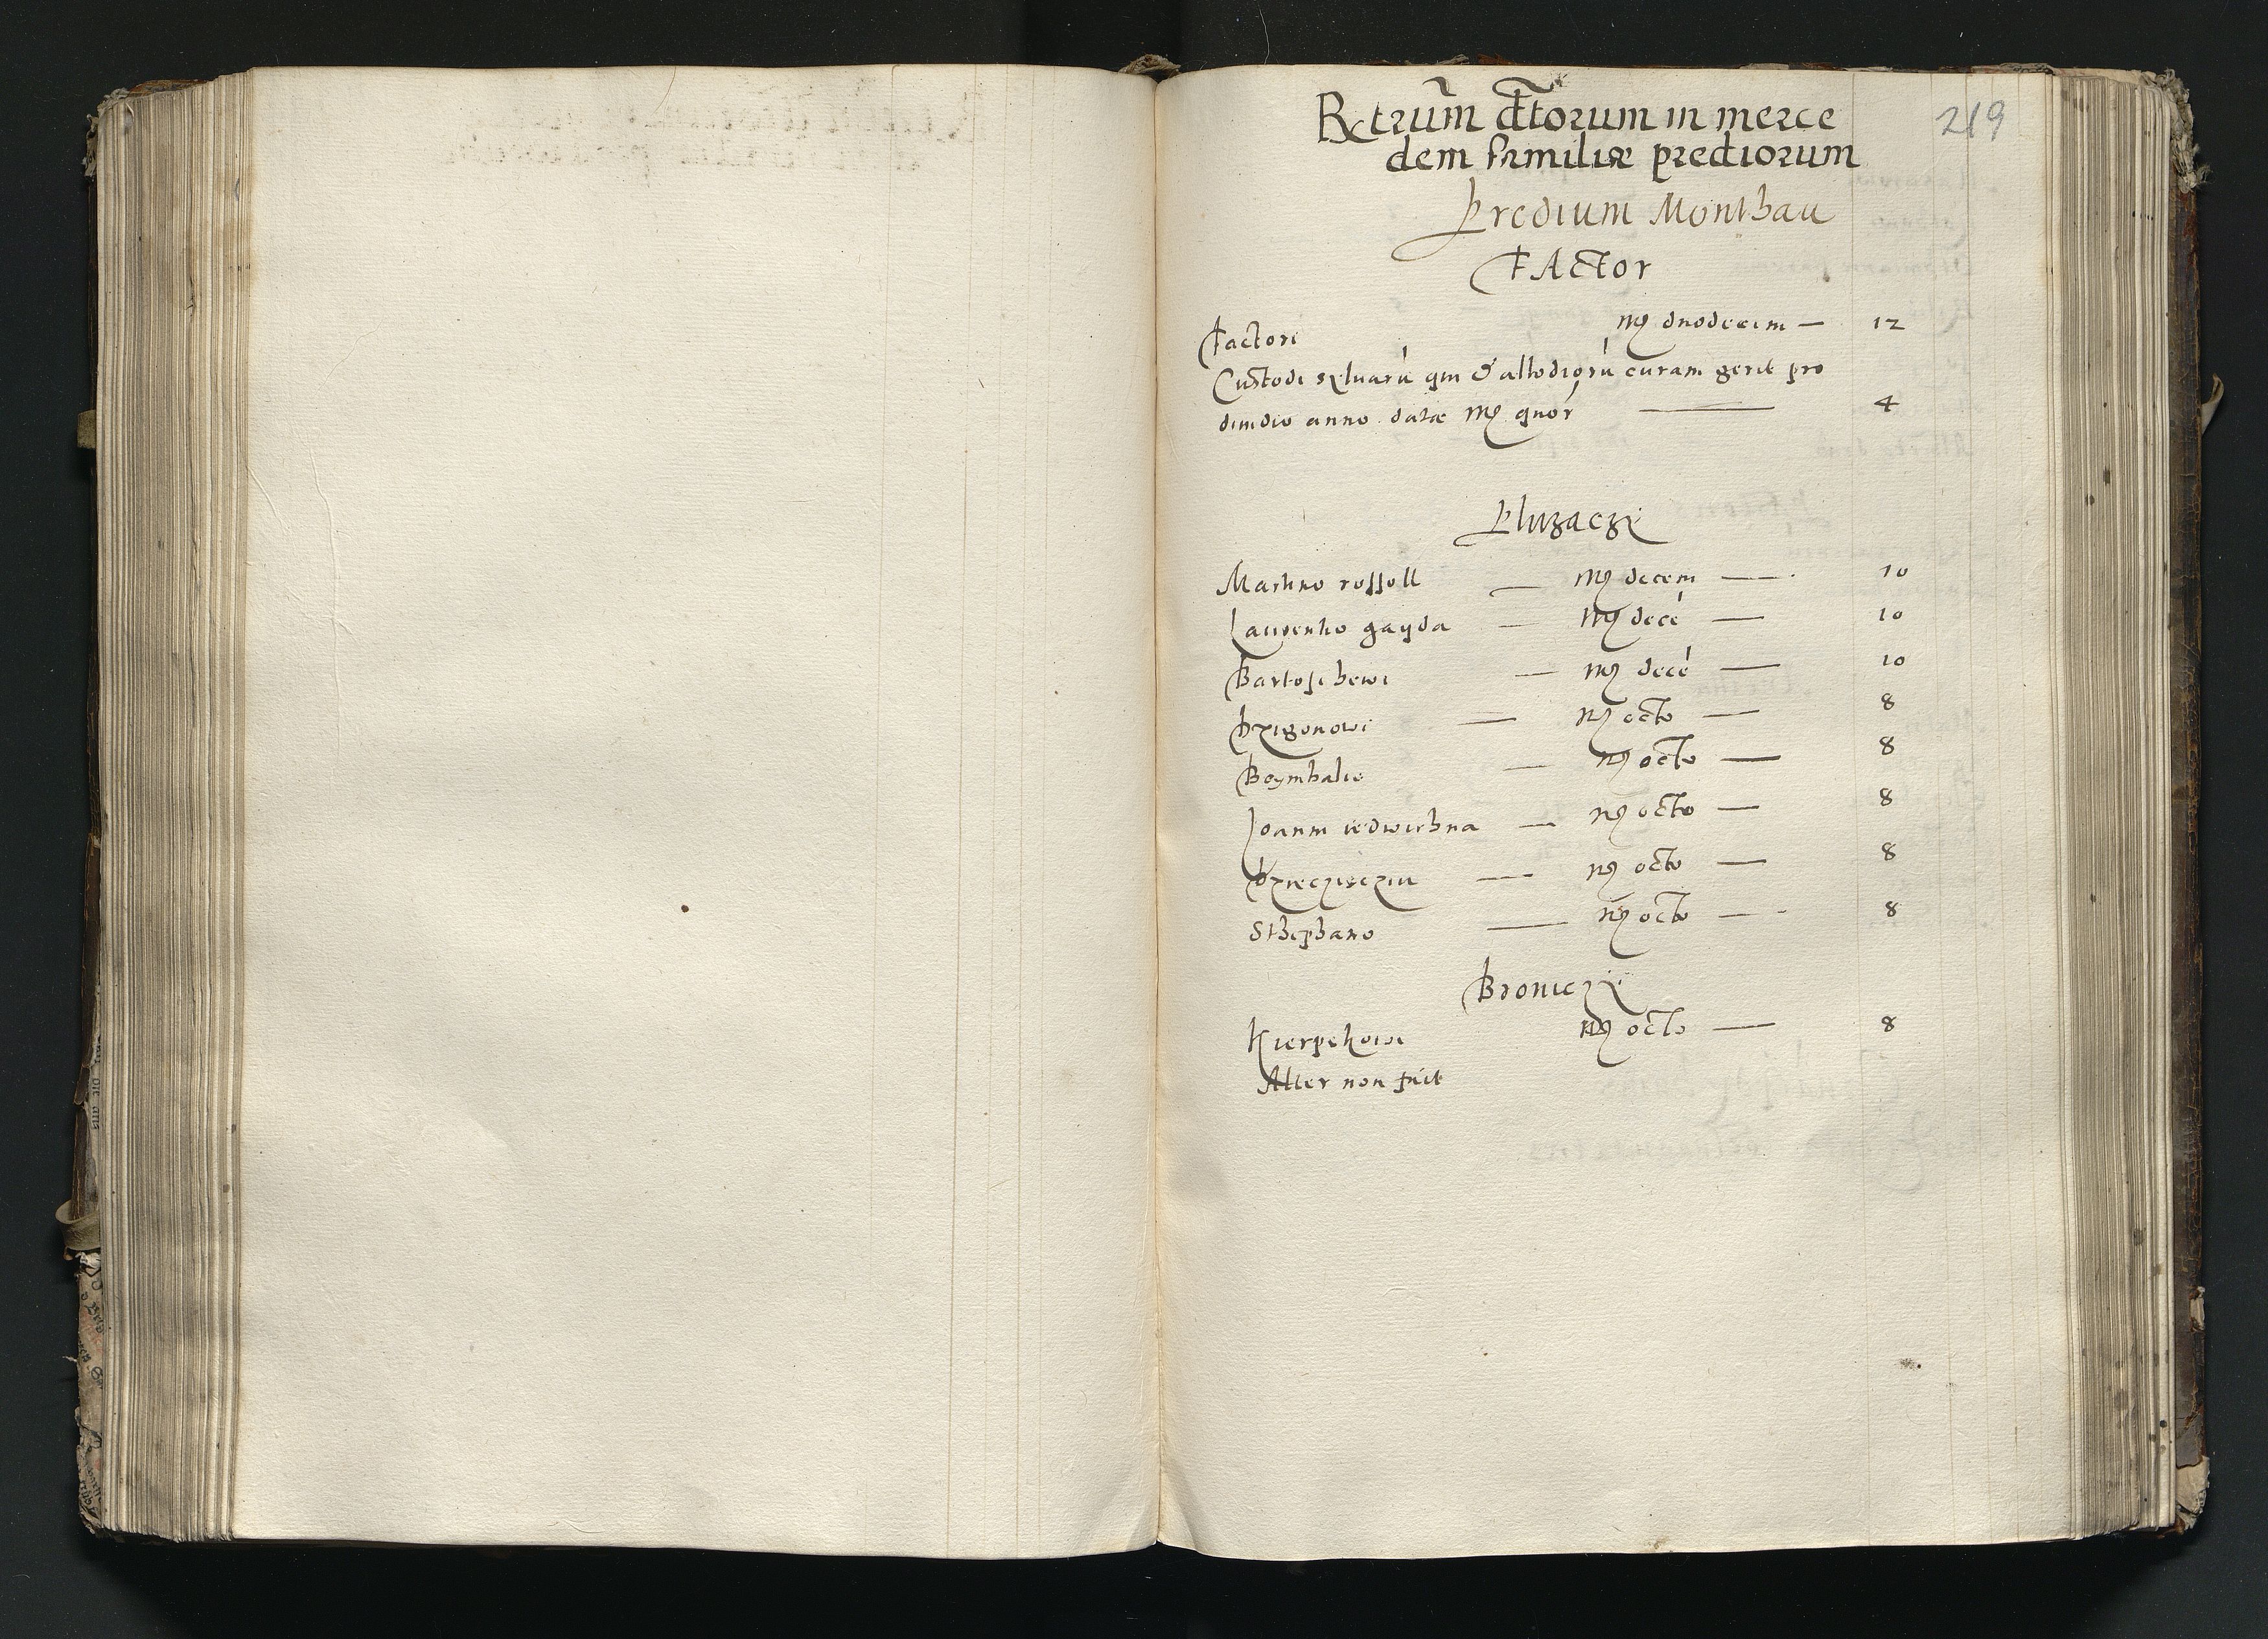 Rx trum dctorum in merce
dem familiæ prediorum
219
Predium Monthau
FActor
Factori mg duodecim — 12
Custodi syluarũ qui & allodiorũ curam gerit pro
dimdio anno datæ mg quor — 4
Pluzaczy
Martino rossoll — mg decem — 10
Laurentio gayda — mg decẽ — 10
Bartoschewi — mg decẽ — 10
Dzigonowi — mg octo — 8
Boymhalie — mg octo — 8
Joanni iedwichna — mg octo — 8
Dziecziecziu — mg octo — 8
Sthephano — mg octo — 8
Broniczy
Kierpekowi mg octo — 8
Alter non fuit